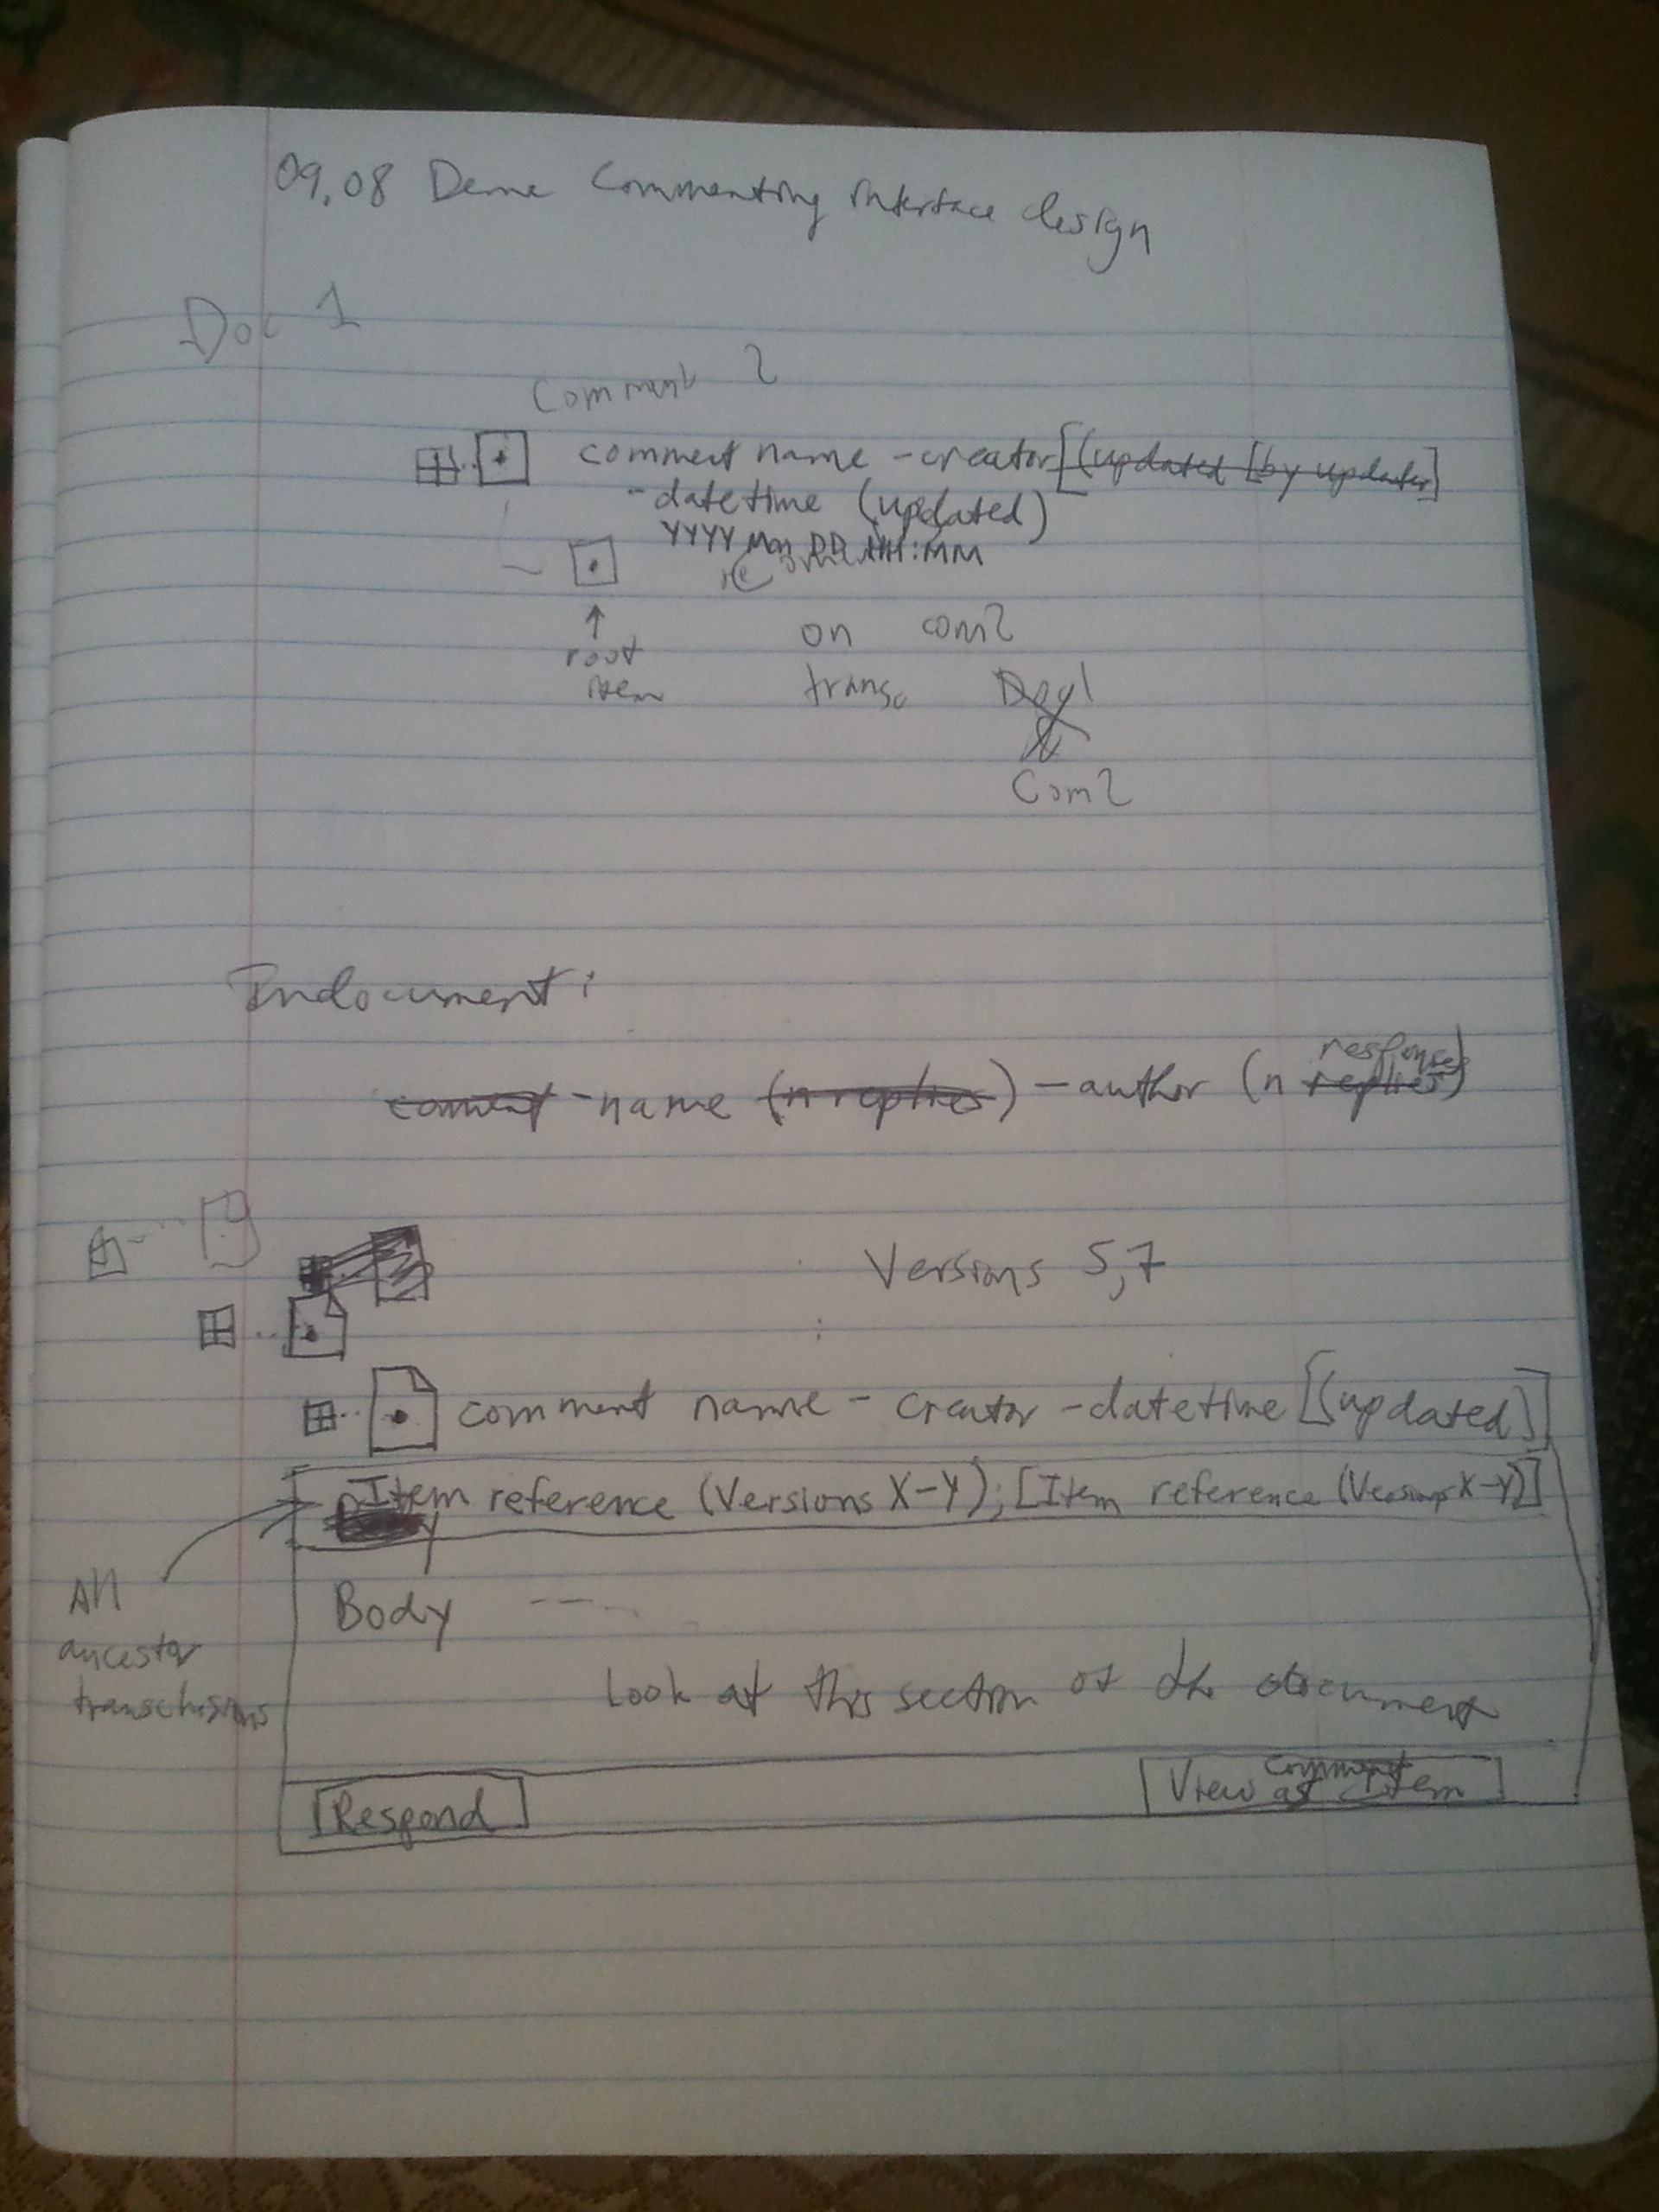 09.08 Deme Commenting interface design
Doc 1
Comment 2
comment name - creator [(updated [by updater]
- datetime (updated)
YYYY Mon DD HH:MM
re
root
item
on com2
transc Doc1
Com2
Indocument:
comment - name (n replies) - author (n replies)
responses
Versions 5,7
comment name - creator - datetime [(updated)]
Item reference (Versions X-Y); [Item reference (Versions X-Y)]
All
ancestor
transclusions
Body ---..
Look at this section of the document
Respond
View as Item
comment